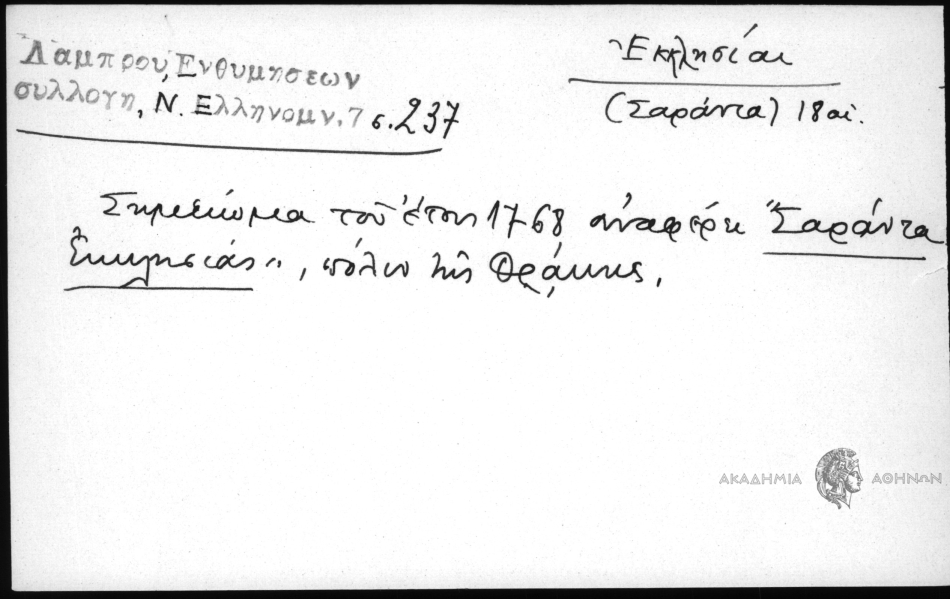 Λαμπρου, Ενθυμησεων
συλλογη, Ν. Ελληνομν. 7 σ. 237
Ἐκκλησίαι
(Σαράντα) 18 αἰ.
Σημείωμα τοῦ ἔτους 1768 ἀναφέρει "Σαράντα
Ἐκκλησιάς", πόλιν τῆς Θράκης.
ΑΚΑΔΗΜΙΑ ΑΘΗΝΩΝ